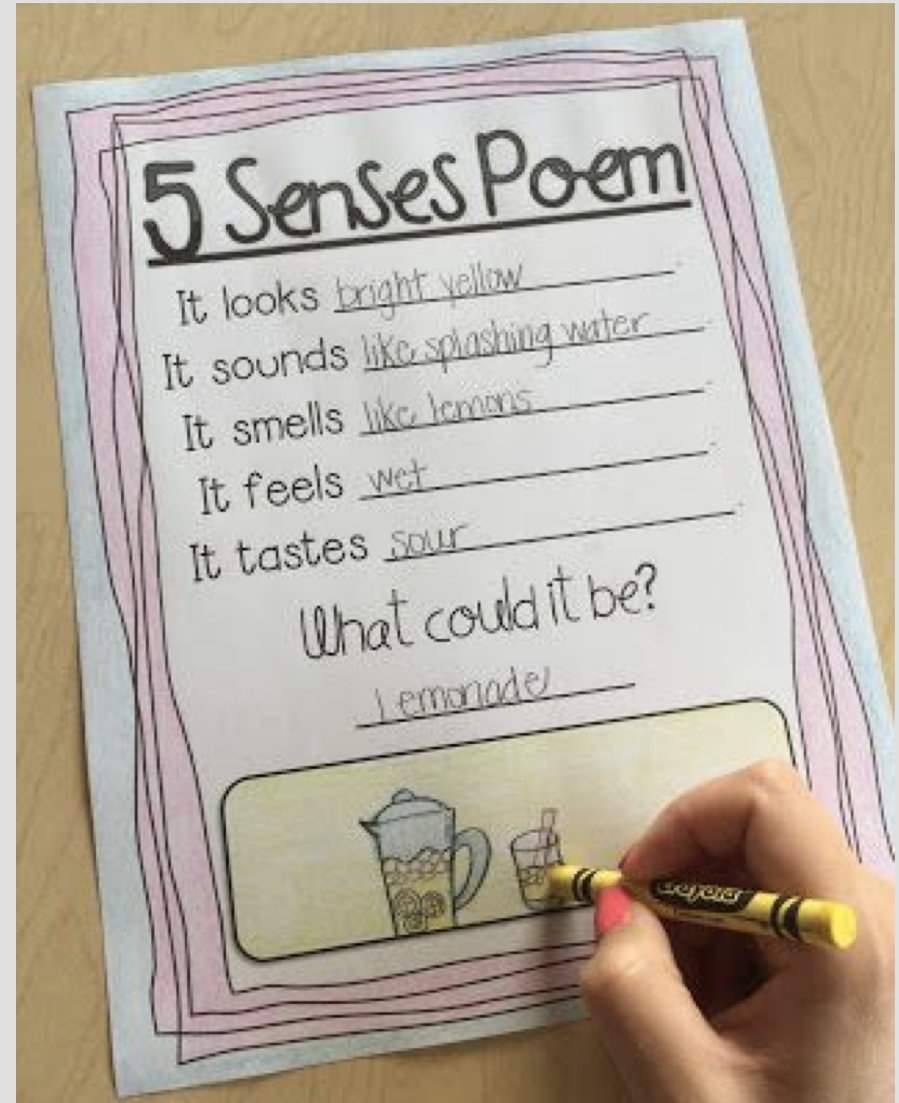 5 Senses Poem
It looks bright yellow.
It sounds like splashing water.
It smells like lemons.
It feels wet.
It tastes sour.
What could it be?
Lemonade
Crayola